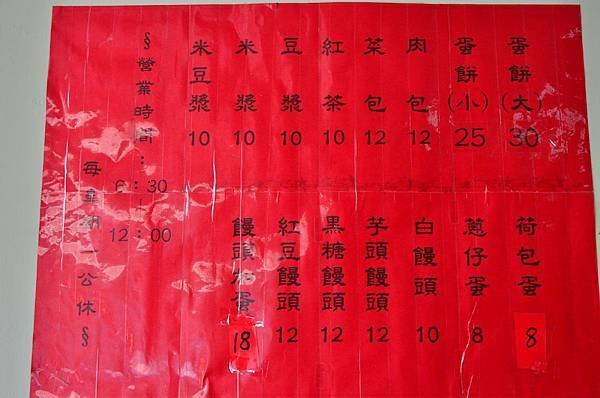 蛋餅(大) 30
蛋餅(小) 25
肉包 12
菜包 12
紅茶 10
豆漿 10
米漿 10
米豆漿 10
荷包蛋 8
蔥仔蛋 8
白饅頭 10
芋頭饅頭 12
黑糖饅頭 12
紅豆饅頭 12
饅頭加蛋 18
§營業時間:
6:30
|
12:00
每星期一公休§